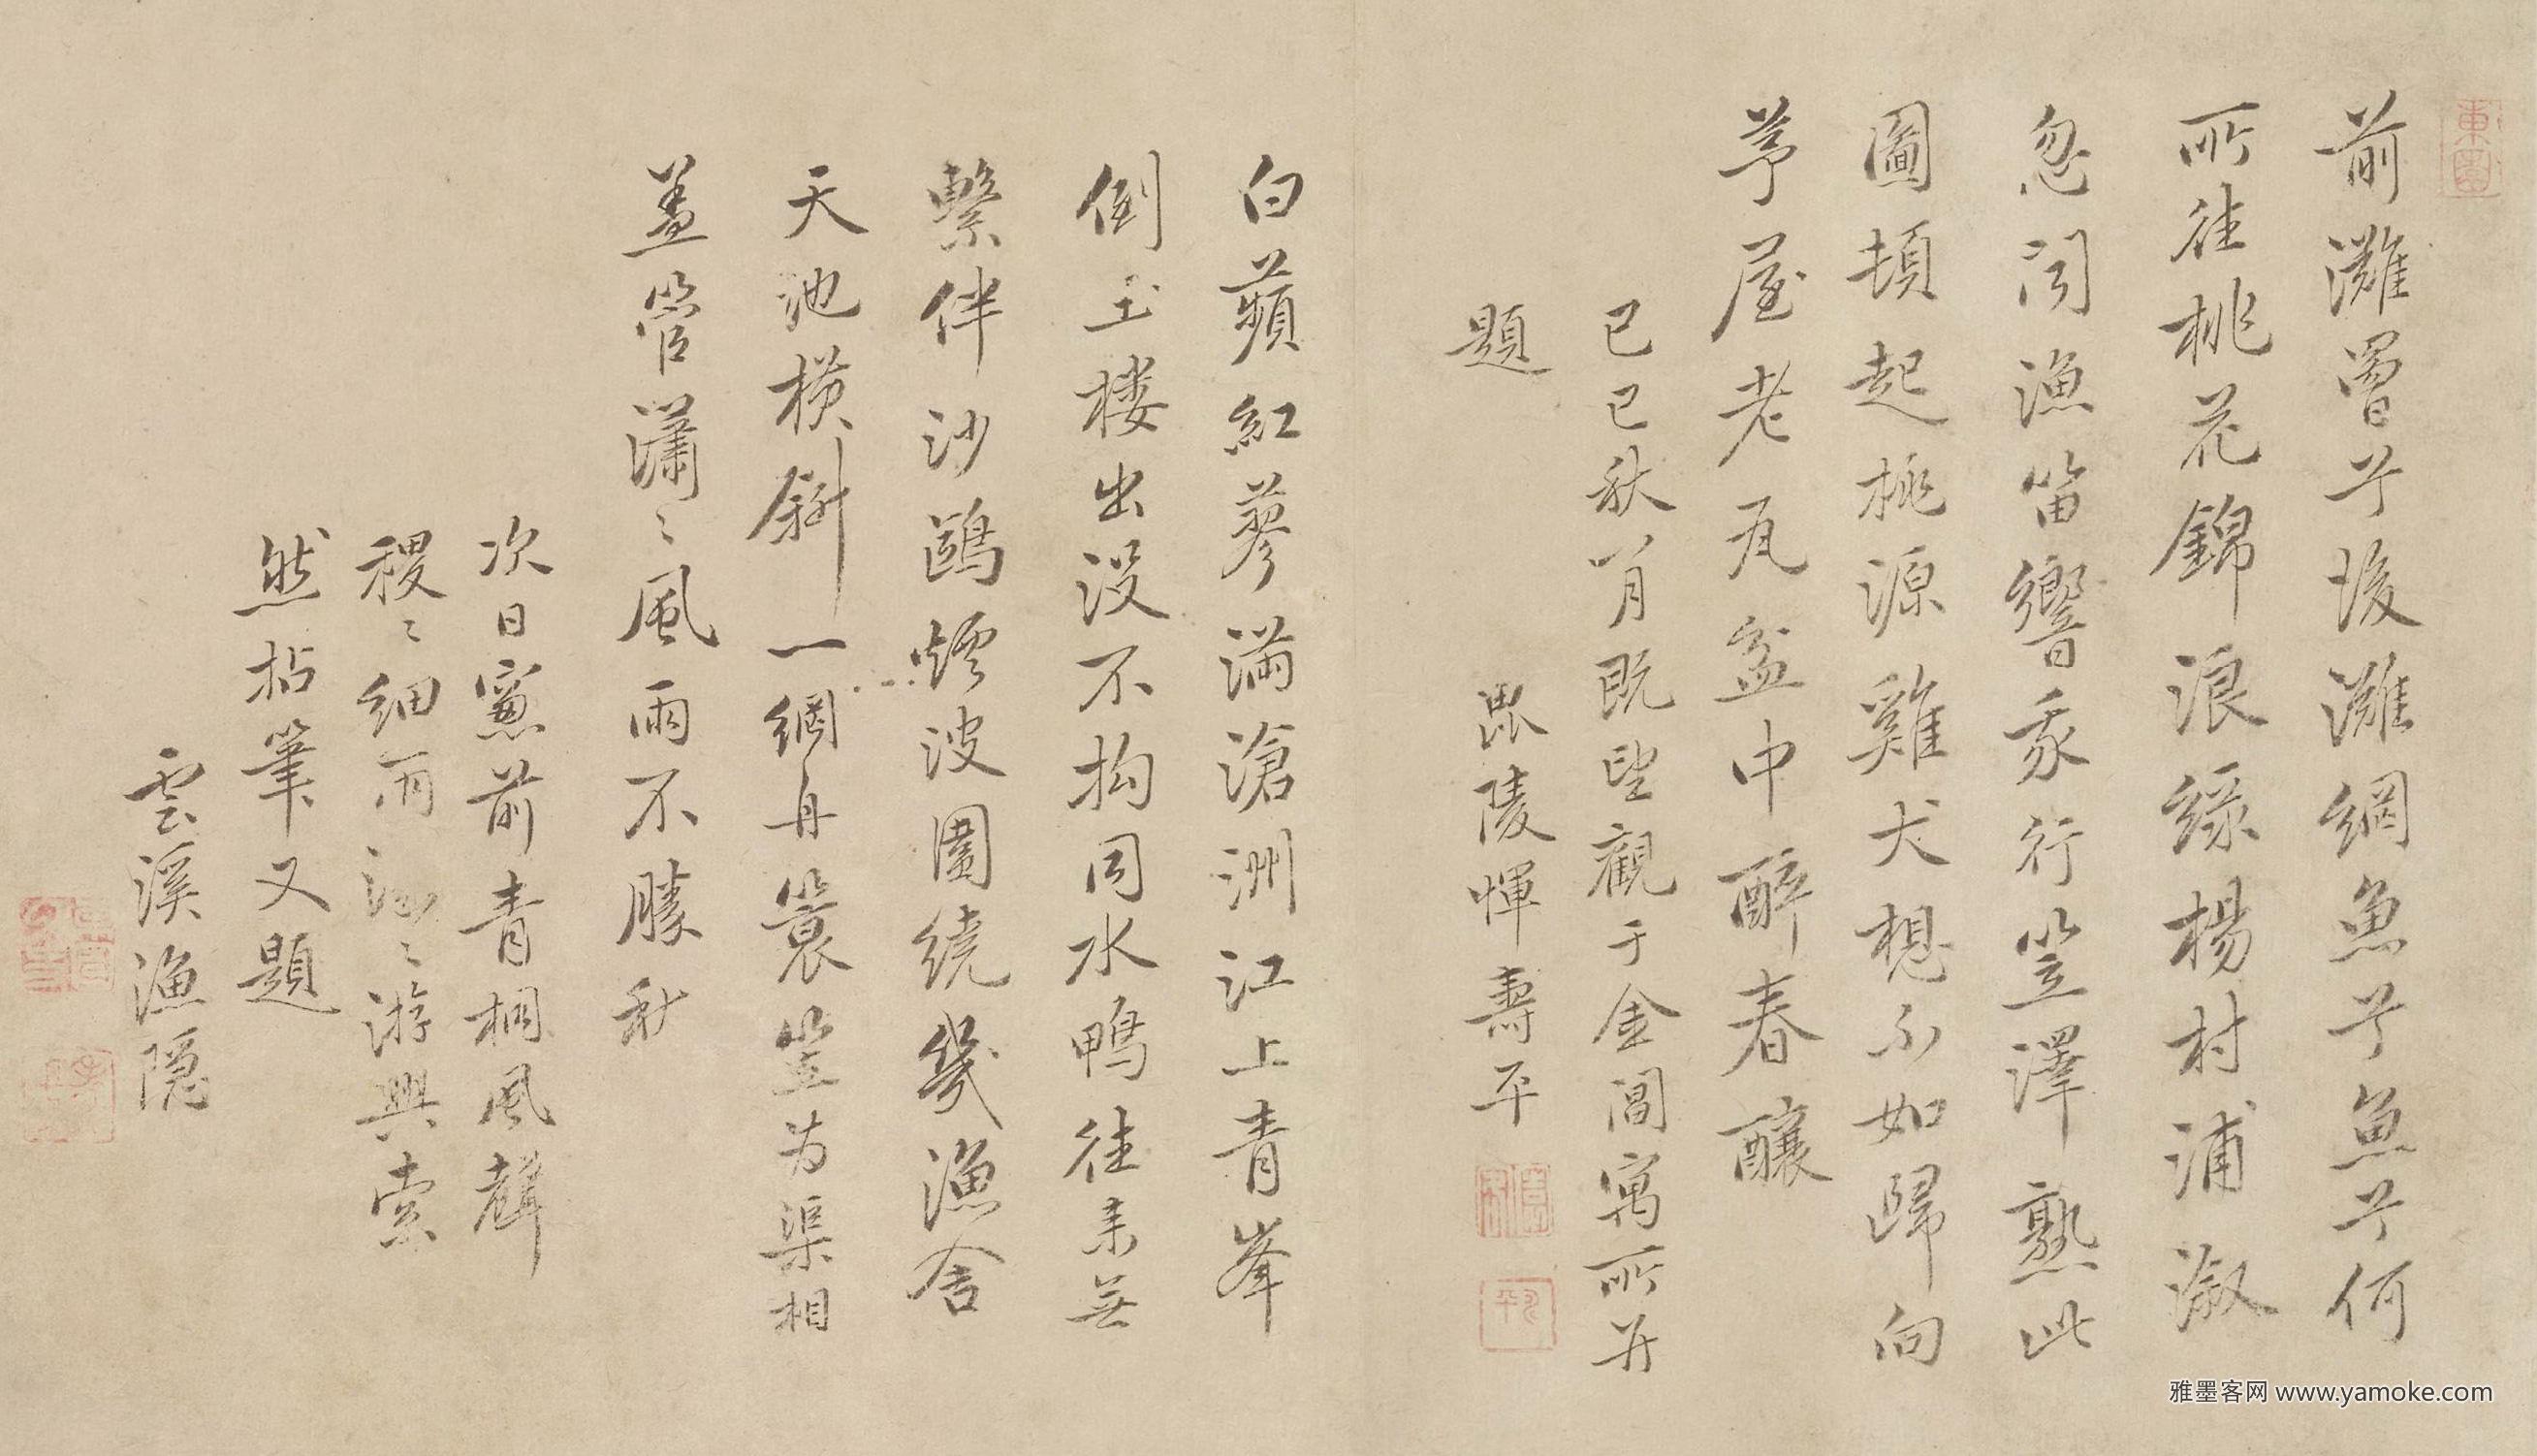 東園
前灘罾兮後灘網魚兮魚兮何
所往桃花錦浪綠楊村浦漵
忽聞漁笛響我行笠澤熟此
圖頓起桃源雞犬想不如歸向
茅屋老瓦盆中醉春釀
己巳秋八月既望觀于金閶寓所并
題 毘陵惲壽平
白蘋紅蓼滿滄洲江上青峯
倒玉楼出没不拘同水鴨往来無
繫伴沙鷗煙波圍繞幾漁舍
天池横斜一綱舟簑笠为渠相
蓋管瀟〻風雨不勝秋
次日窻前青桐風聲
稷〻細雨〻游興索
然拈筆又題
雲溪漁隱
雅墨客网 www.yamoke.com